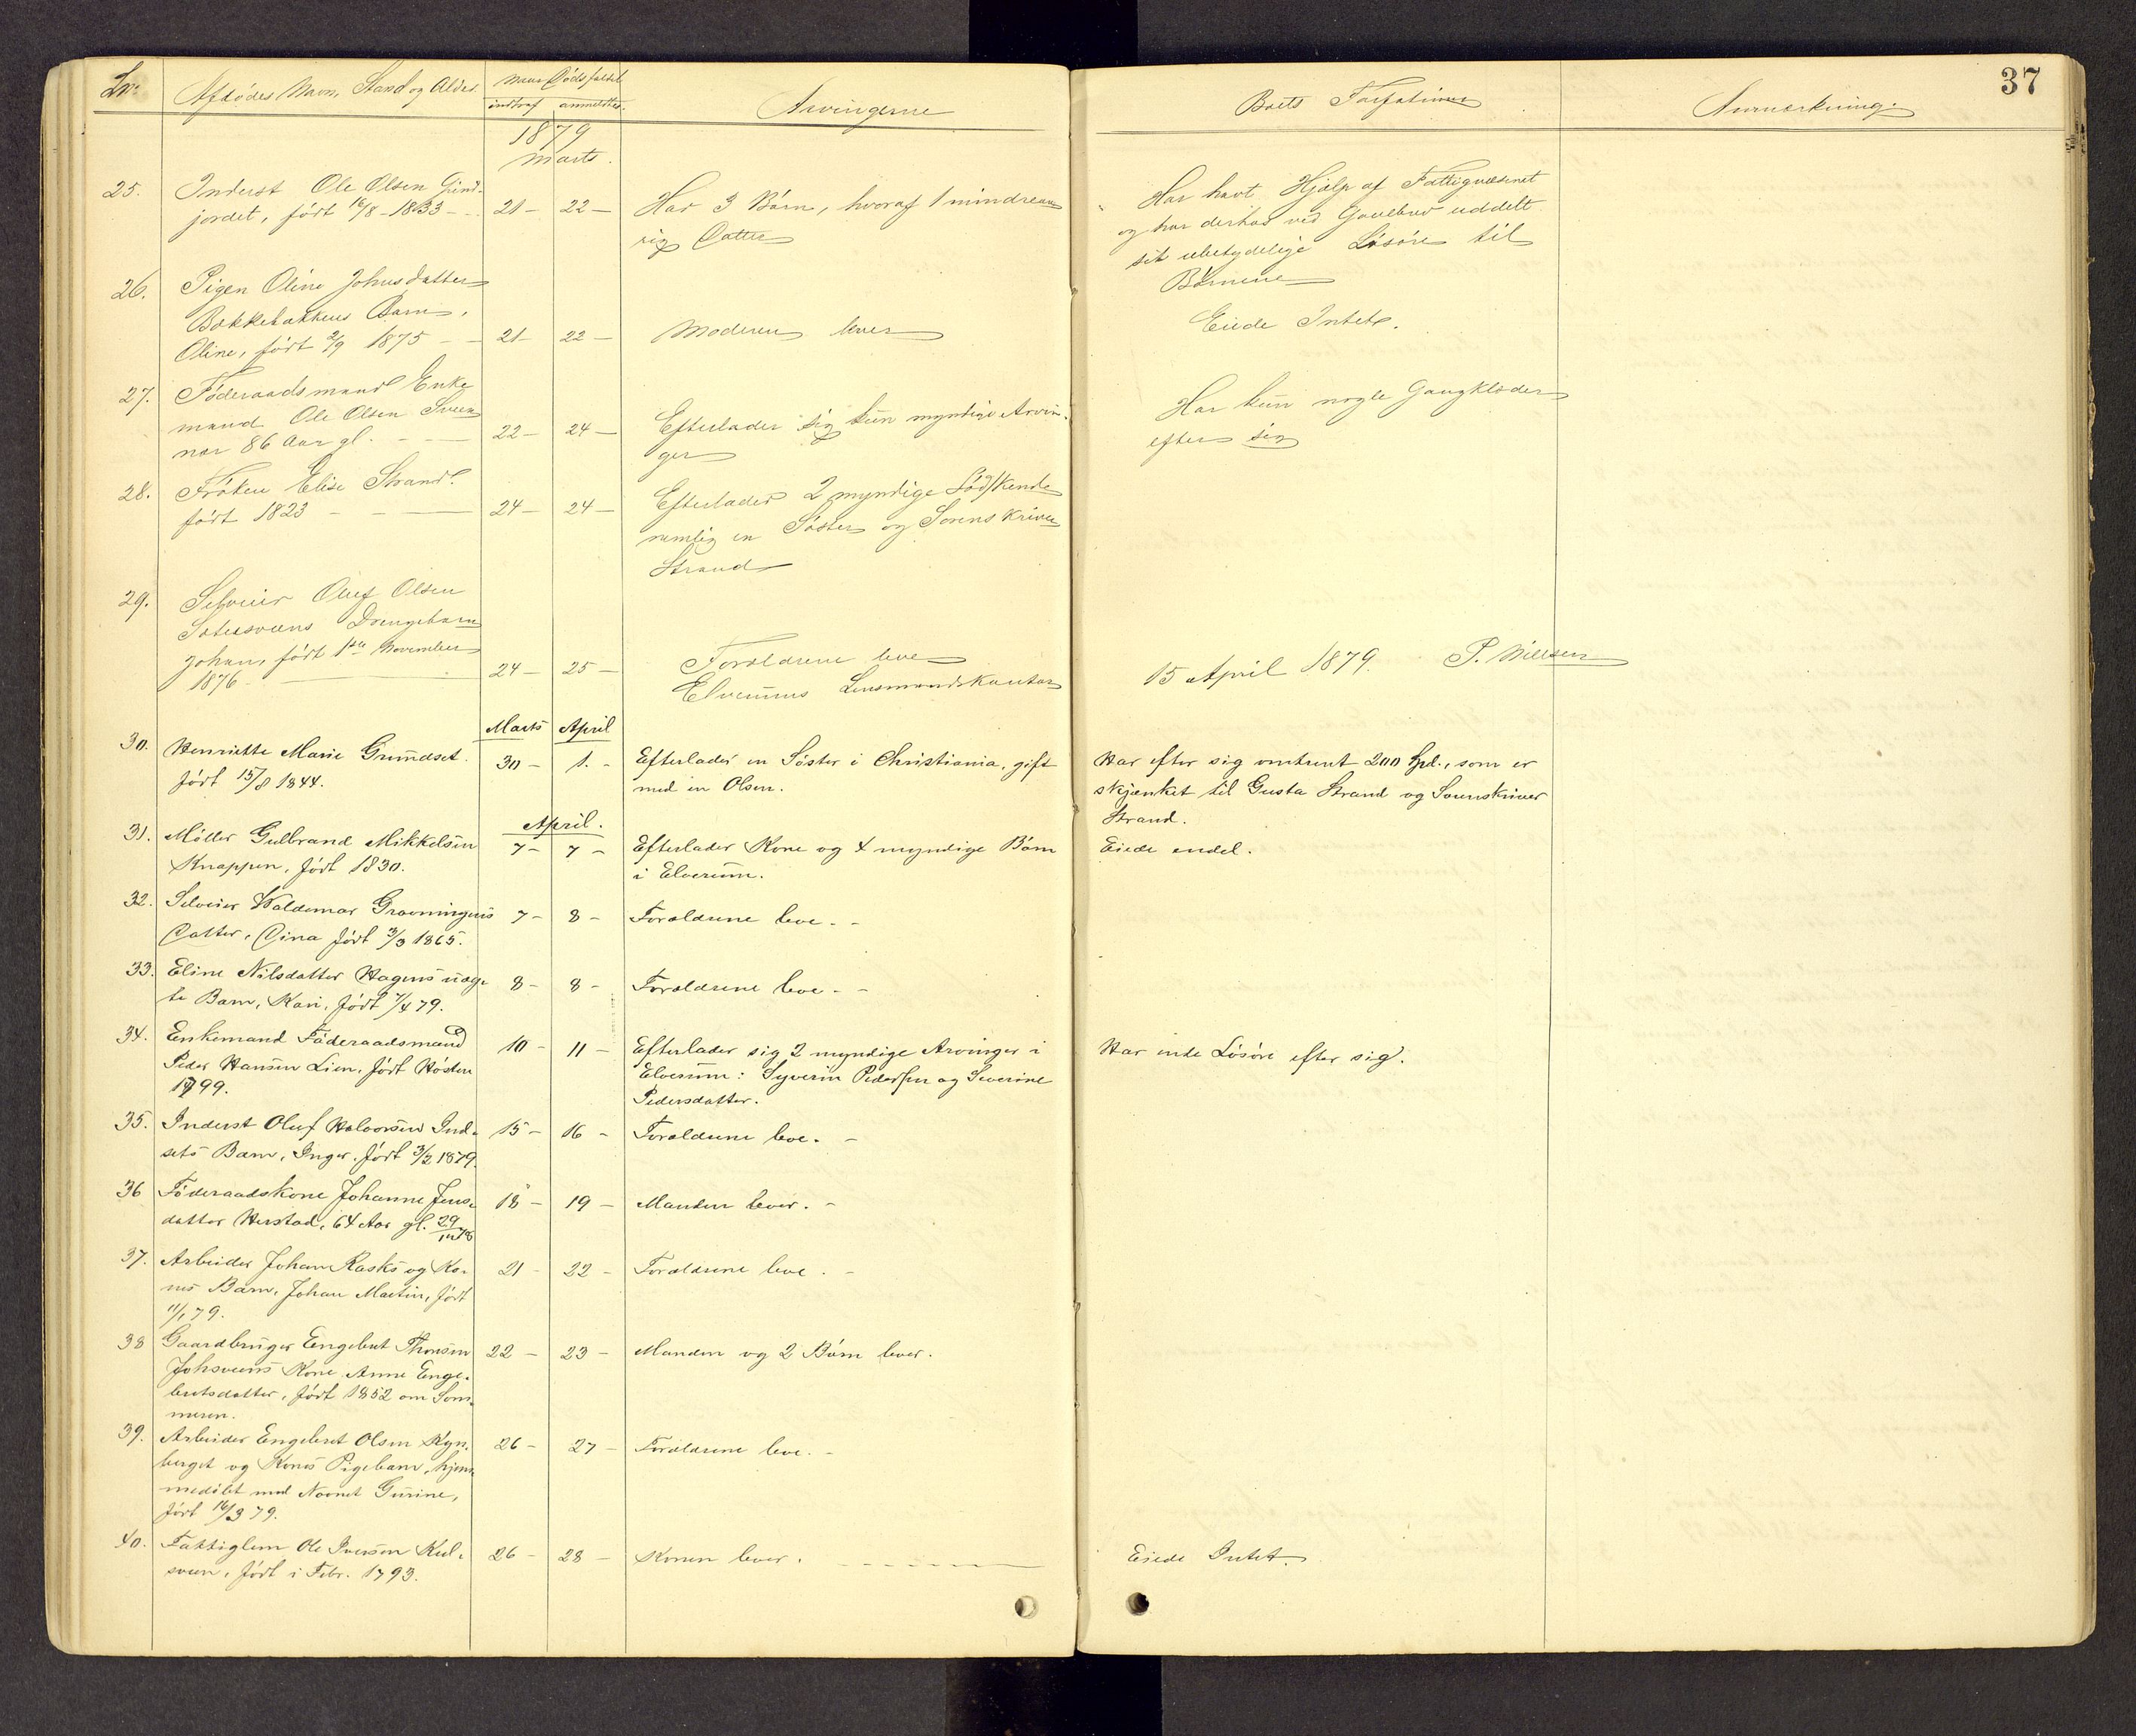 37
Lnr. Afdödes Navn, Stand og Alder. Naar Dödsfaldet Arvingerne Boets Forfatning Anmærkning.
indtraf anmeldtes.
1879
Marts.
25. Inderst Ole Olsen Grind-
jordet, født 16/8 - 1833 - 21 - 22 - Har 3 Børn, hvoraf 1 mindreaa-
rig Datter
Har havt Hjælp af Fattigvæsenet
og har derhos ved Gavebrev uddelt
sit ubetydelige Løsøre til
Børnene
26. Pigen Oline Johnsdatter
Bækkebakkens Barn,
Oline, født 2/9 1875 - - 21 - 22 - Moderen lever
Eiede Intet.
27. Føderaadsmand Enke
mand Ole Olsen Svee
nor 86 Aar gl. - - 22 - 24 - Efterlader sig kun myndige Arvin-
ger
Har kun nogle Gangklæder
efter sig
28. Frøken Elise Strand
født 1823 - - - 24 - 24 - Efterlader 2 myndige Sødskende
nemlig en Søster og Sorenskriver
Strand
29. Selveier Oluf Olsen
Sætersveens Drengebarn
Johan, født 1ste November
1876 - 24 - 25 - Forældrene leve
Elverums Lensmandskontor
15 April 1879. P. Nielsen
Marts April
30. Henriette Marie Grundset. 30 - 1. - Efterlader en Søster i Christiania, gift
født 15/8 1844. med en Olsen.
Har efter sig omtrent 200 Spd., som er
skjænket til Gusta Strand og Sorenskriver
Strand.
April.
31. Møller Gulbrand Mikkelsen 7 - 7 - Efterlader Kone og 4 myndige Børn
Knappen, født 1830. i Elverum.
Eiede endel.
32. Selveier Waldemar Gravningens 7 - 8 - Forældrene leve. -
Datter, Dina født 3/3 1865.
33. Eline Nilsdatter Hagens uæg- 8 - 8 - Forældrene leve. -
te Barn, Kari, født 7/4 79.
34. Enkemand Føderaadsmand 10 - 11 - Efterlader sig 2 myndige Arvinger i
Peder Hansen Lien, født Høsten Elverum: Syverin Pedersen og Severine
1799. Pedersdatter.
Har inte Løsøre efter sig.
35. Inderst Oluf Halvorsen Ind- 15 - 16 - Forældrene leve. -
sets Barn, Inger, født 3/2 1879.
36 Føderaadskone Johanne Jens- 18 - 19 - Manden lever. -
datter Herstad, 64 Aar gl. 29/10 78
37. Arbeider Johan Rasks og Ko- 21 - 22 - Forældrene leve. -
nes Barn, Johan Martin, født
11/1 79.
38 Gaardbruger Engebret Thorsen 22 - 23 - Manden og 2 Børn lever.
Johsveens Kone Anne Enge-
bretsdatter, født 1852 om Som-
meren.
39. Arbeider Engebret Olsen Kyn- 26 - 27 - Forældrene leve. -
berget og Kones Pigebarn, hjem-
medøbt med Navnet Gurine,
født 16/3 79.
40. Fattiglem Ole Iversen Kul- 26 - 28 - Konen lever. - - - - - -
sveen, født i Febr. 1793.
Eiede Intet.